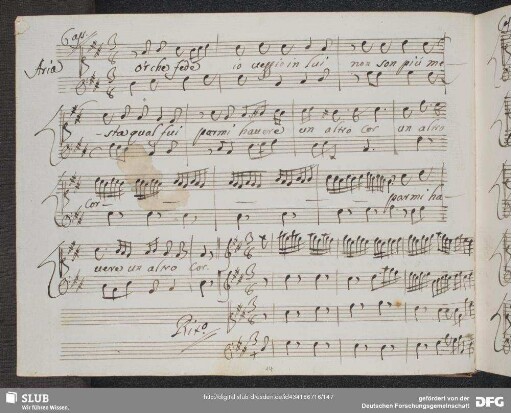 Aria
or che fede io veggio in lui non son più me-
sta qual fui parmi havere un altro Cor un altro
Cor parmi ha-
vere un altro Cor.
Rito.
SLUB
Wir führen Wissen.
http://digital.slub-dresden.de/id434186716/147
gefördert von der
Deutschen Forschungsgemeinschaft
DFG